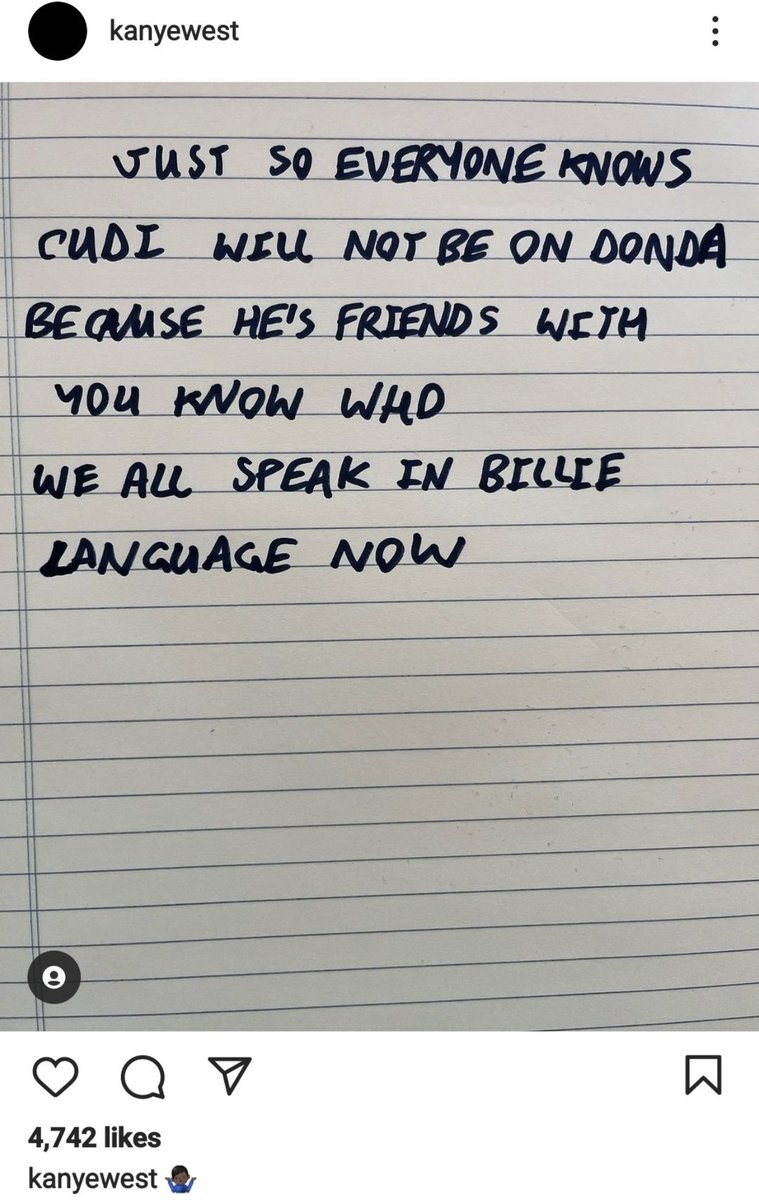 kanyewest
JUST SO EVERYONE KNOWS
CUDI WILL NOT BE ON DONDA
BECAUSE HE'S FRIENDS WITH
YOU KNOW WHO
WE ALL SPEAK IN BILLIE
LANGUAGE NOW
4,742 likes
kanyewest 🤷🏿‍♂️